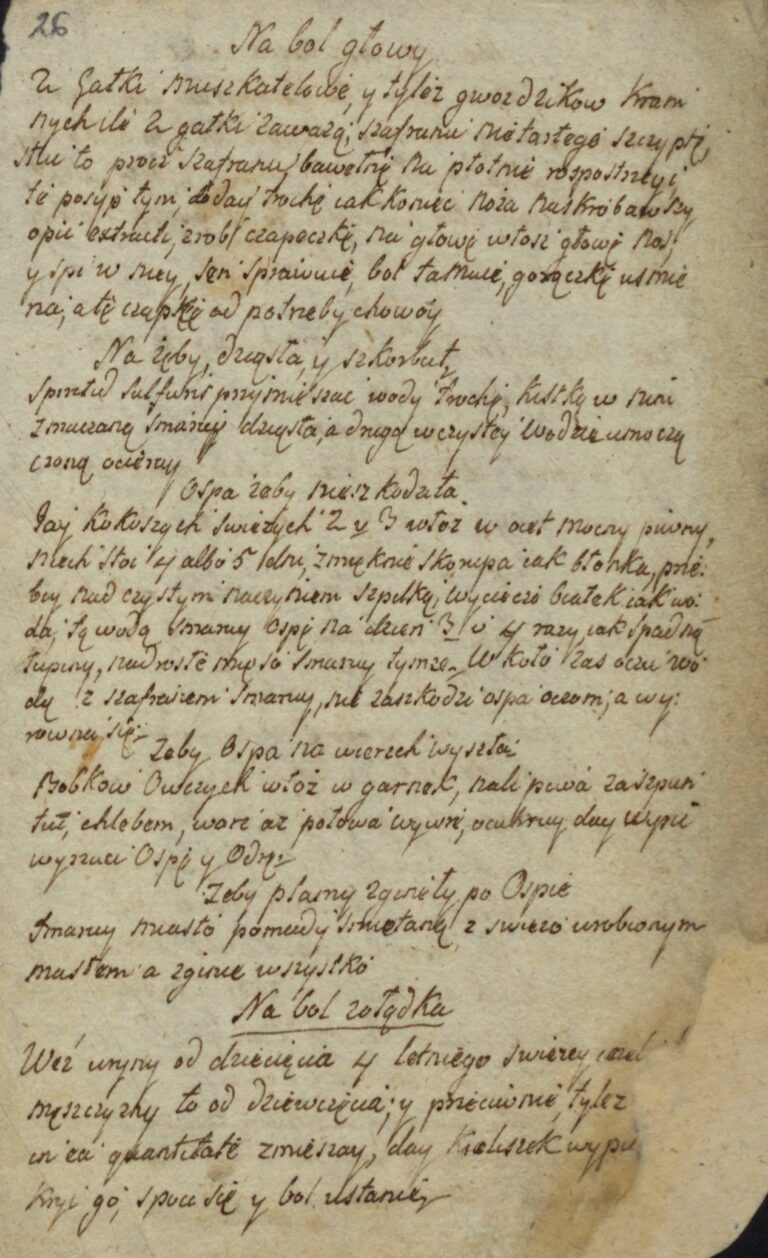 26
Na bol głowy
2 Gałki muszkatelowe, y tyleż gwozdzikow kram
nych ile 2 gałki zaważą, szafranu nie tartego szczyptę,
stłu to procz szafranu, bawełnę na płotnie rospostrzyi,
tę posyp tym, doday trochę iak koniec noża naskrobawszy
opii extracti, zrob czapeczkę, na głowę włosz głowę
y spi w niey, sen sprawuie, bol tamuie, gorączkę usmie
rza, a tę czapkę od potrzeby chowáy
Na zęby, dziąsła, y szkorbut,
spiritus sulfuris przymieszać wody trochę, kistkę w nim
zmaczaną smaruj dziąsła, a drugą w czystey wodzie umocz
czoną ocieray
Ospa żeby nieszkodziła.
Jay kokoszych swieżych 2 y 3 włoż w ocet mocny piwny,
niech stoi 4 albo 5 dni, zmięknie skorupa iak błonka, prze:
biy nad czystym naczyniem szpilką, wyciecze białek iak wo:
da, tą wodą smaruy ospę na dzień 3 i 4 razy, iak spadną
łupiny, nadrosłe mięso smaruy tymże. W koło zas oczu wo
dą z szafranem smaruy, nie zaszkodzi ospa oczom, a wy:
rowna się.
Zeby Ospa na wierzch wyszła
Bobkow Owczych włoż w garnek, nali piwa zaszpun
tuj, chlebem, warz aż połowa wywre, ocukruy day wypić
wyrzuci Ospę y Odrę.
Zeby plamy zginęły po Ospie
Smaruy miasto pomady smietaną z swiezo urobionym
masłem a zginie wszystko
Na bol zołądka
Weź uryny od dziecięcia 4 letniego swiezey
męszczyzny to od dziewczęcia, y przeciwnie, tylez
in ea quantitate zmieszay, day kieliszek
kryi go, spoci się y bol ustanie,